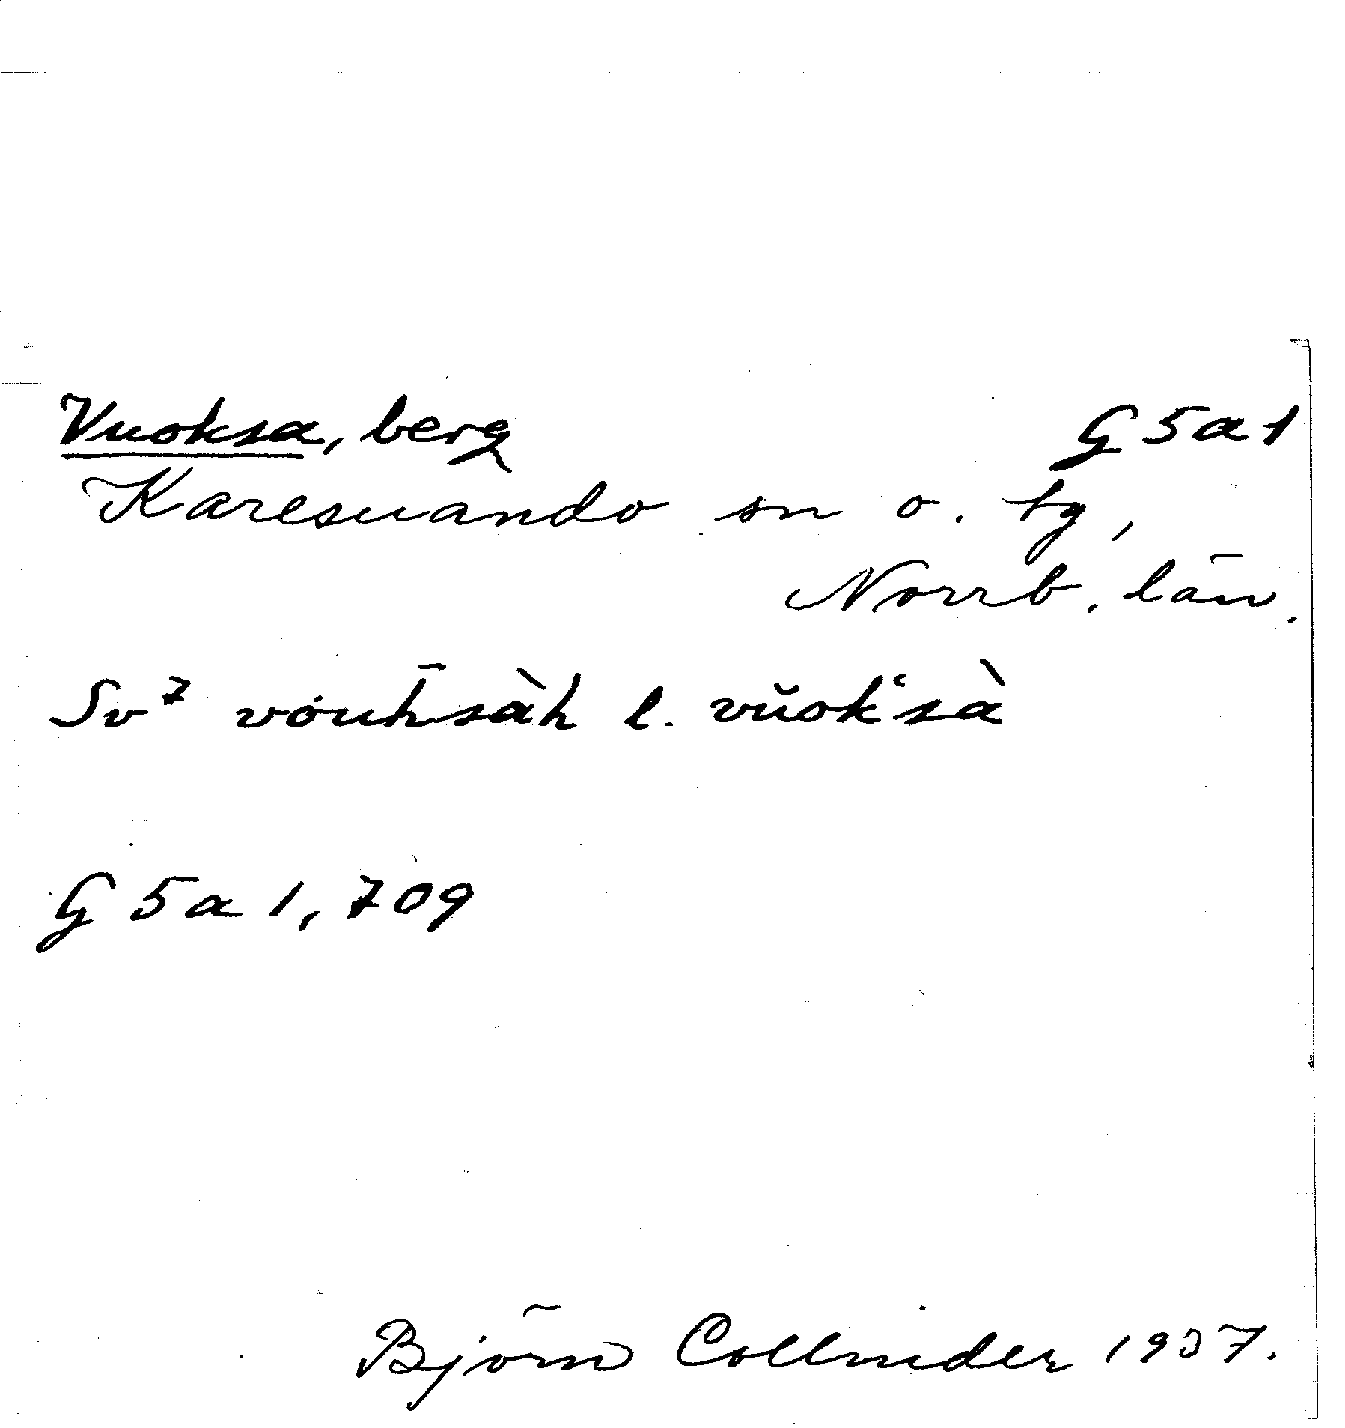 Vuoksa, berg G5a1
Karesuando sn o. tg,
Norrb. län.
Sv⁷ vȯuh̄sàh l. vŭok‘sà
G5a1,709
Björn Collinder 1937.